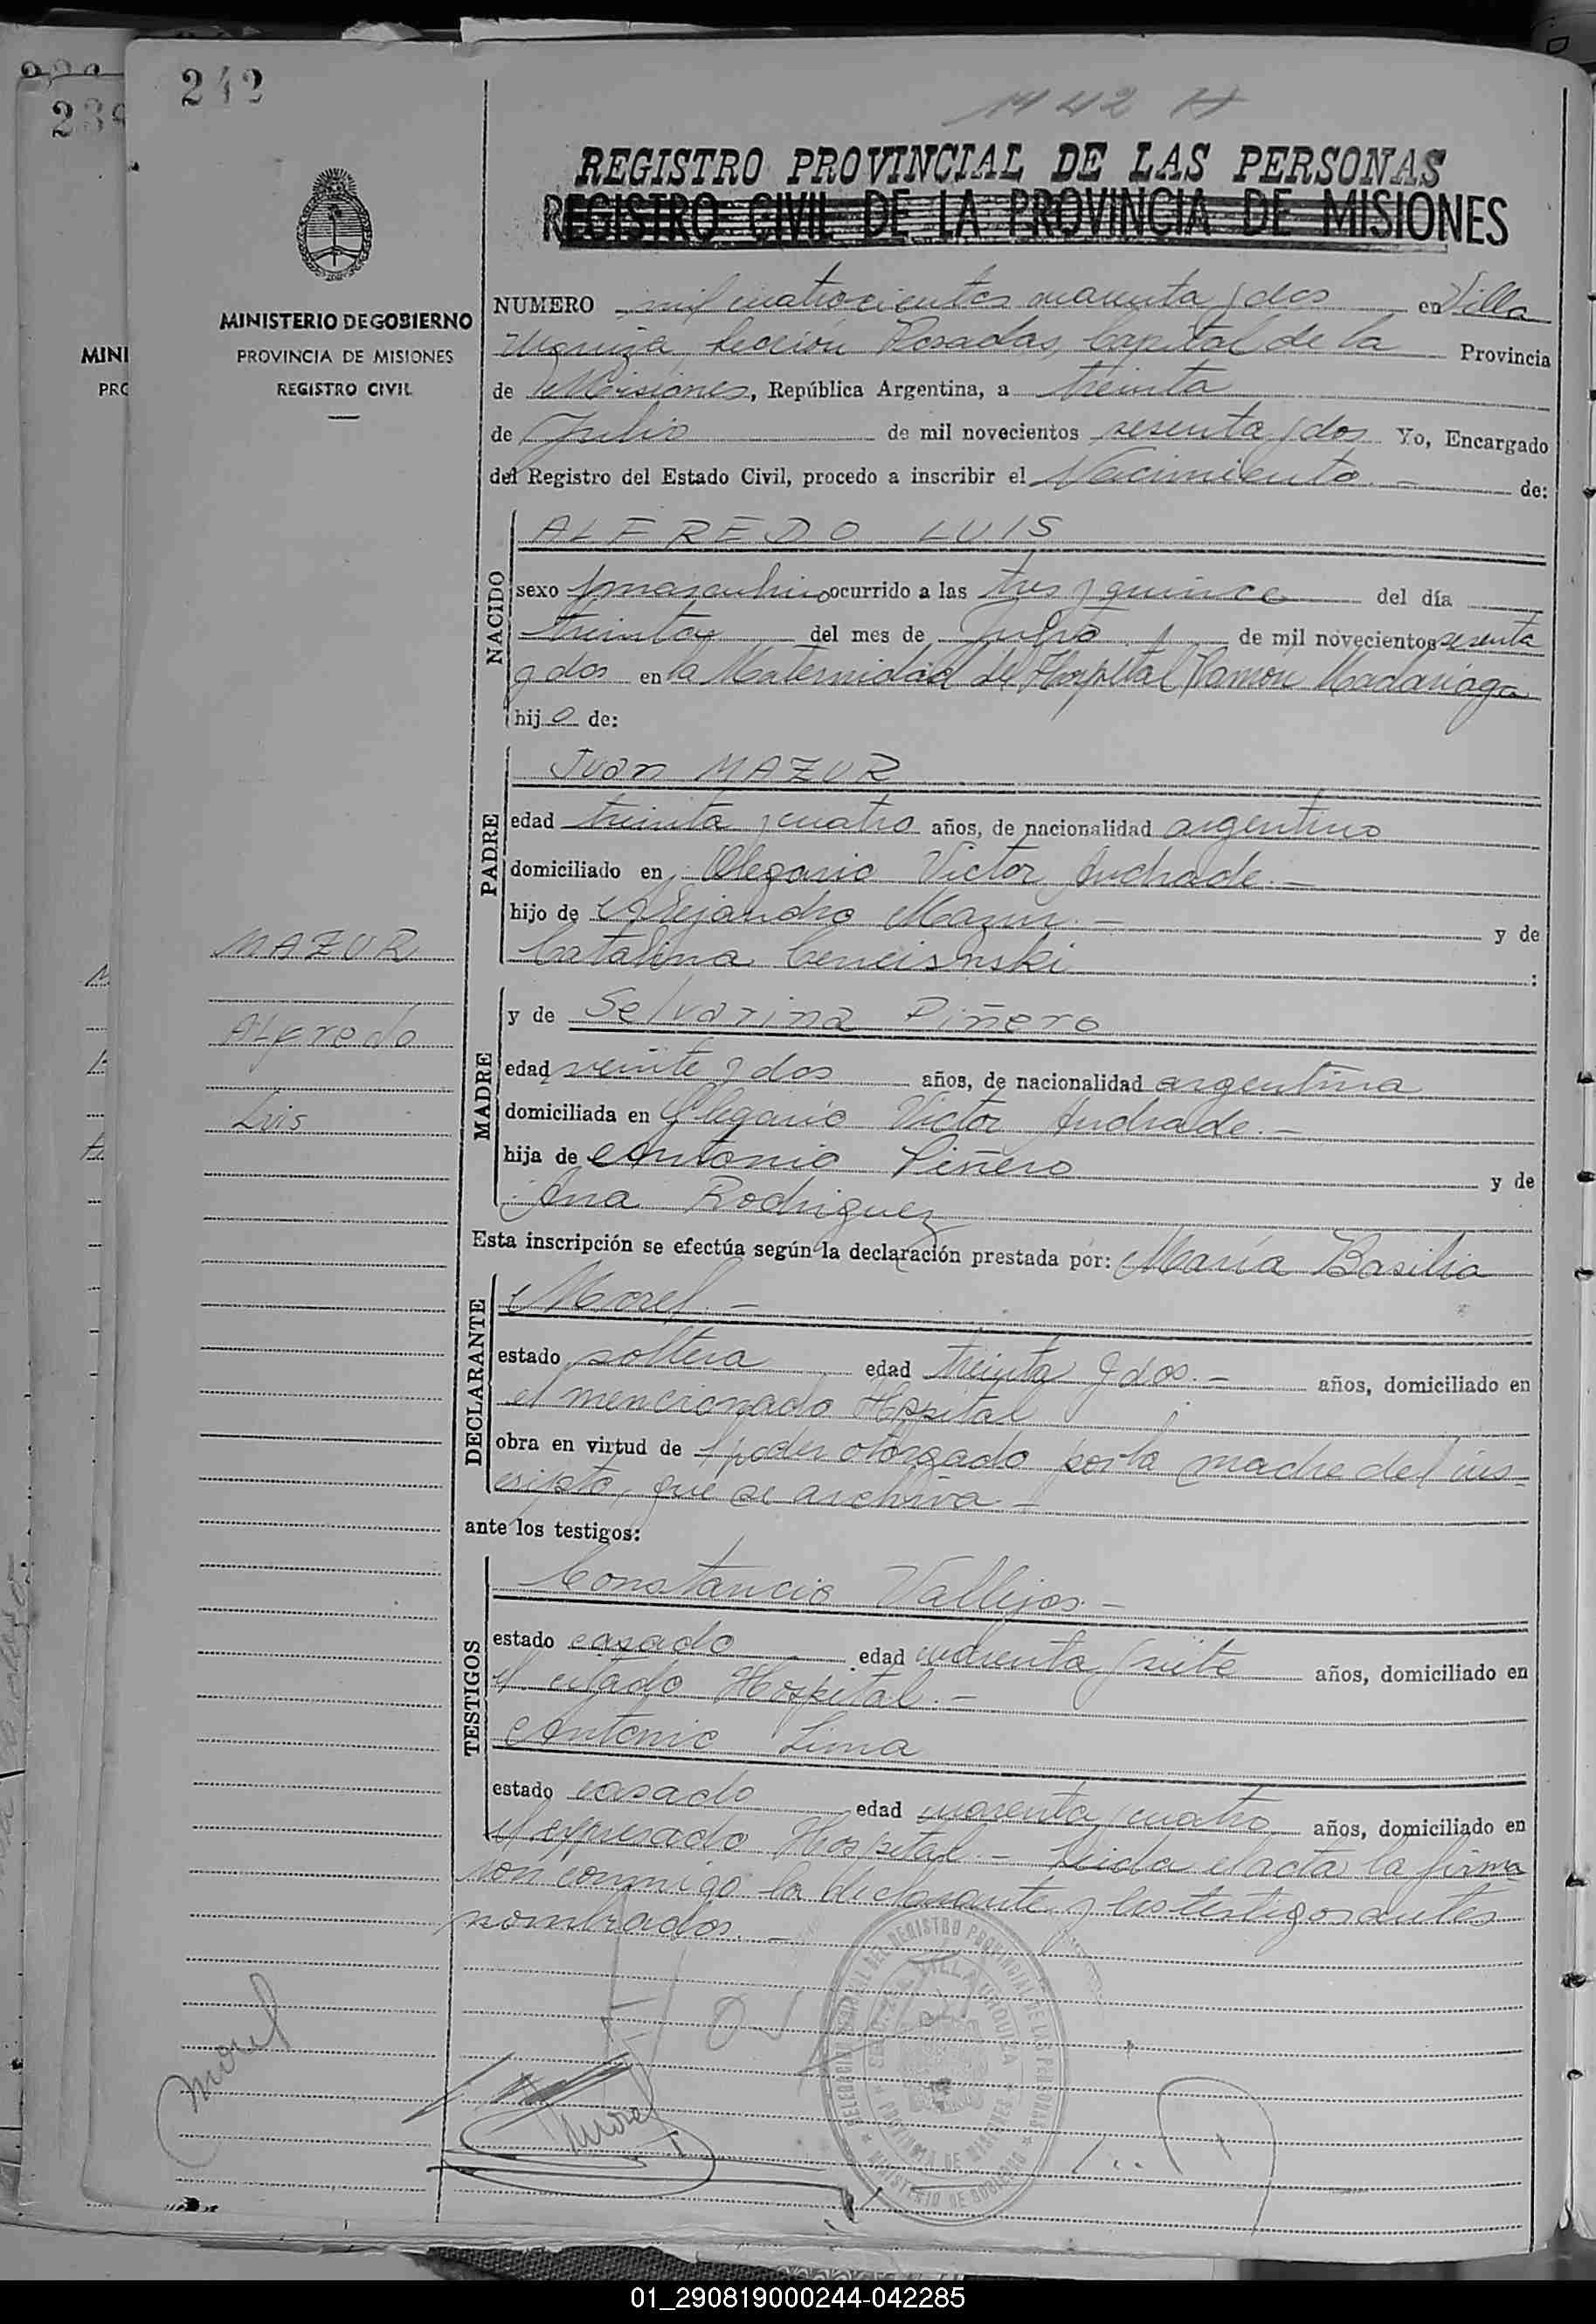 242
239
1442
REGISTRO PROVINCIAL DE LAS PERSONAS
REGISTRO CIVIL DE LA PROVINCIA DE MISIONES
MINISTERIO DE GOBIERNO
PROVINCIA DE MISIONES
REGISTRO CIVIL
MINI
PRO
NUMERO mil cuatrocientos cuarenta y dos en Villa
Urquiza, Sección Posadas, Capital de la Provincia
de Misiones, República Argentina, a treinta
de Julio de mil novecientos sesenta y dos Yo, Encargado
del Registro del Estado Civil, procedo a inscribir el Nacimiento.- de:
NACIDO
ALFREDO LUIS
sexo masculino ocurrido a las tres y quince del día
treinta del mes de Julio de mil novecientos sesenta
y dos en la Maternidad del Hospital Ramon Madariaga
hijo de:
PADRE
Juan MAZUR
edad treinta y cuatro años, de nacionalidad argentino
domiciliado en Olegario Victor Andrade.-
hijo de Alejandro Mazur.- y de
Catalina
MAZUR
Alfredo
Luis
MADRE
y de Selvarina Piñero
edad veinte y dos años, de nacionalidad argentina
domiciliada en Olegario Victor Andrade.-
hija de Antonio Piñero y de
Ana Rodriguez
Esta inscripción se efectúa según la declaración prestada por: María Basilia
DECLARANTE
Morel.-
estado soltera edad treinta y dos.- años, domiciliado en
el mencionado Hospital
obra en virtud de poder otorgado por la madre del ins-
cripto, que se archiva.-
ante los testigos:
TESTIGOS
Constancio Vallejos.-
estado casado edad cuarenta y siete años, domiciliado en
el citado Hospital.-
Antonio Lima
estado casado edad cuarenta y cuatro años, domiciliado en
el expresado Hospital.- Leida el acta la firma
ron conmigo la declarante y los testigos antes
nombrados.-
DEL REGISTRO PROVINCIAL DE LAS PERSONAS
VILLA URQUIZA
PROVINCIA DE MISIONES
MINISTERIO DE GOBIERNO
Morel
Morel
01_290819000244-042285